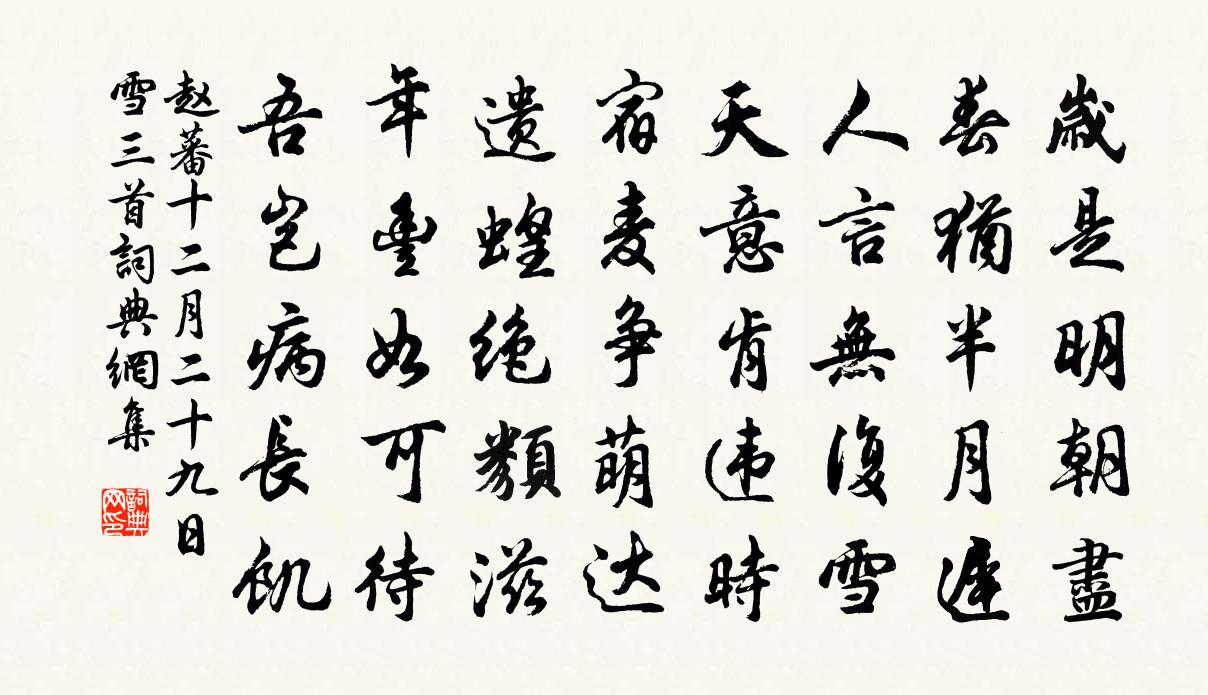 歲是明朝盡
春猶半月遲
人言無復雪
天意肯违時
宿麦争萌达
遗蝗绝類滋
年豐如可待
吾岂病長飢
赵蕃十二月二十九日
雪三首詞典網集
詞典
网印